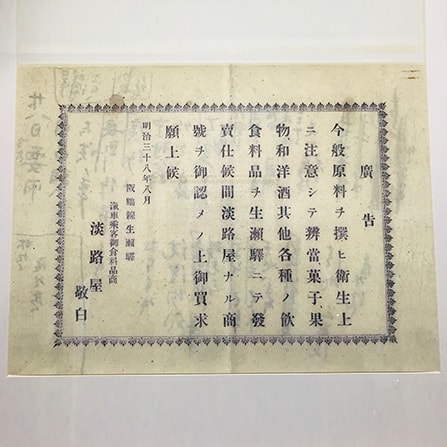 廣告
今般原料ヲ撰ヒ衛生上
ニ注意シテ辨當菓子果
物和洋酒其他各種ノ飲
食料品ヲ生瀬驛ニテ發
賣仕候間淡路屋ナル商
號ヲ御認メノ上御買求
願上候
明治三十八年八月
阪鶴線生瀬驛
滊車乘客御食料品商
淡路屋
敬白